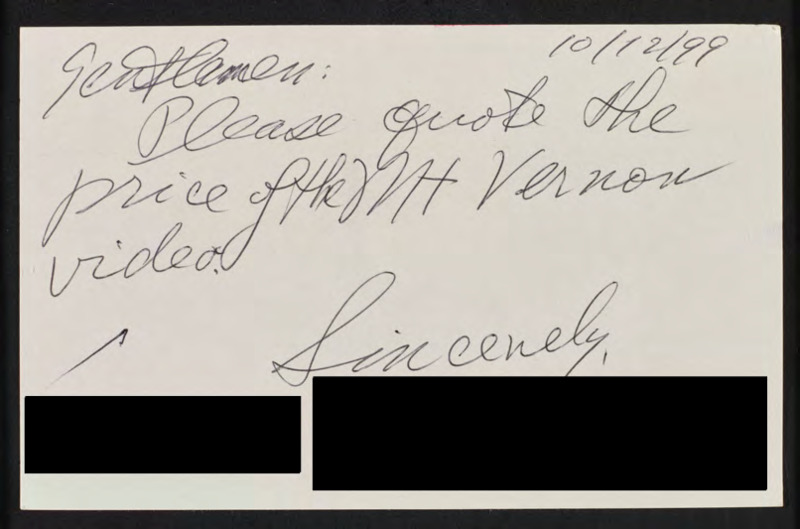 10/12/99
Gentlemen:
Please quote the
price of the Mt Vernon
video.
Sincerely,